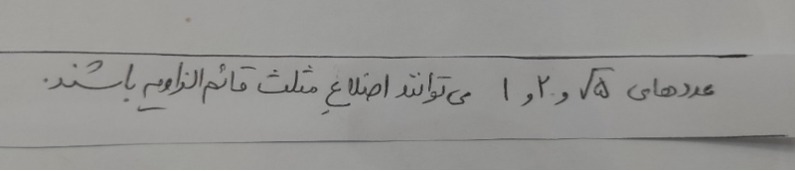 عددهای √۵ و ۲ و ۱ می‌توانند اضلاعِ مثلث قائم الزاویه باشند.